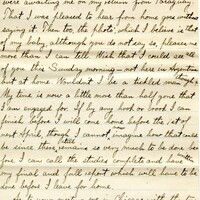 were awaiting me on my return from Paraguay.
That I was pleased to hear from home you without
saying it. Then too the photo, which I believe is that
of my baby, although you do not say so, pleases me
more than I can tell. Wish that I could see all
of you this Sunday morning - not here in Argentina
but at home. Wouldn't I be a tickled man though!
My time is now a little more than half you that
I am engaged for. If by any hook or crook I can
finish before I will come home before the 1st of
next April, though I cannot now imagine how that could
be since there still remains so very much to be done be-
fore I can call the studies complete and have
my final and full report which will have to be
done before I leave for home.